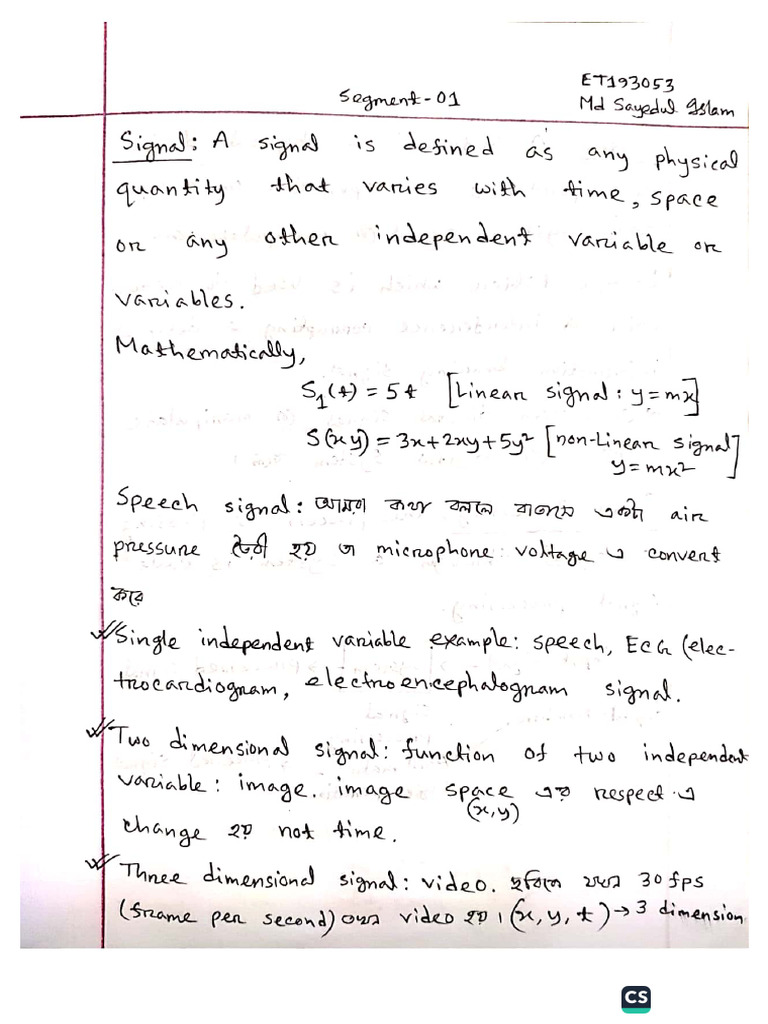 ET193053
Segment-01
Md Sayedul Islam
Signal: A signal is defined as any physical
quantity that varies with time, space
or any other independent variable or
variables.
Mathematically,
S₁(t) = 5t [Linear signal: y=mx]
S(xy) = 3x+2xy+5y² [non-Linear signal]
y=mx²
Speech signal: আমরা কথা বললে বাতাসে একটা air
pressure তৈরী হয় তা microphone voltage এ convert
করে
Single independent variable example: speech, ECG (elec-
trocardiogram, electroencephalogram signal.
Two dimensional signal: function of two independent
variable: image. image space এর respect এ
(x,y)
change হয় not time.
Three dimensional signal: video. ছবিতে যখন 30 fps
(frame per second) তখন video হয়। (x, y, t) → 3 dimension
CS